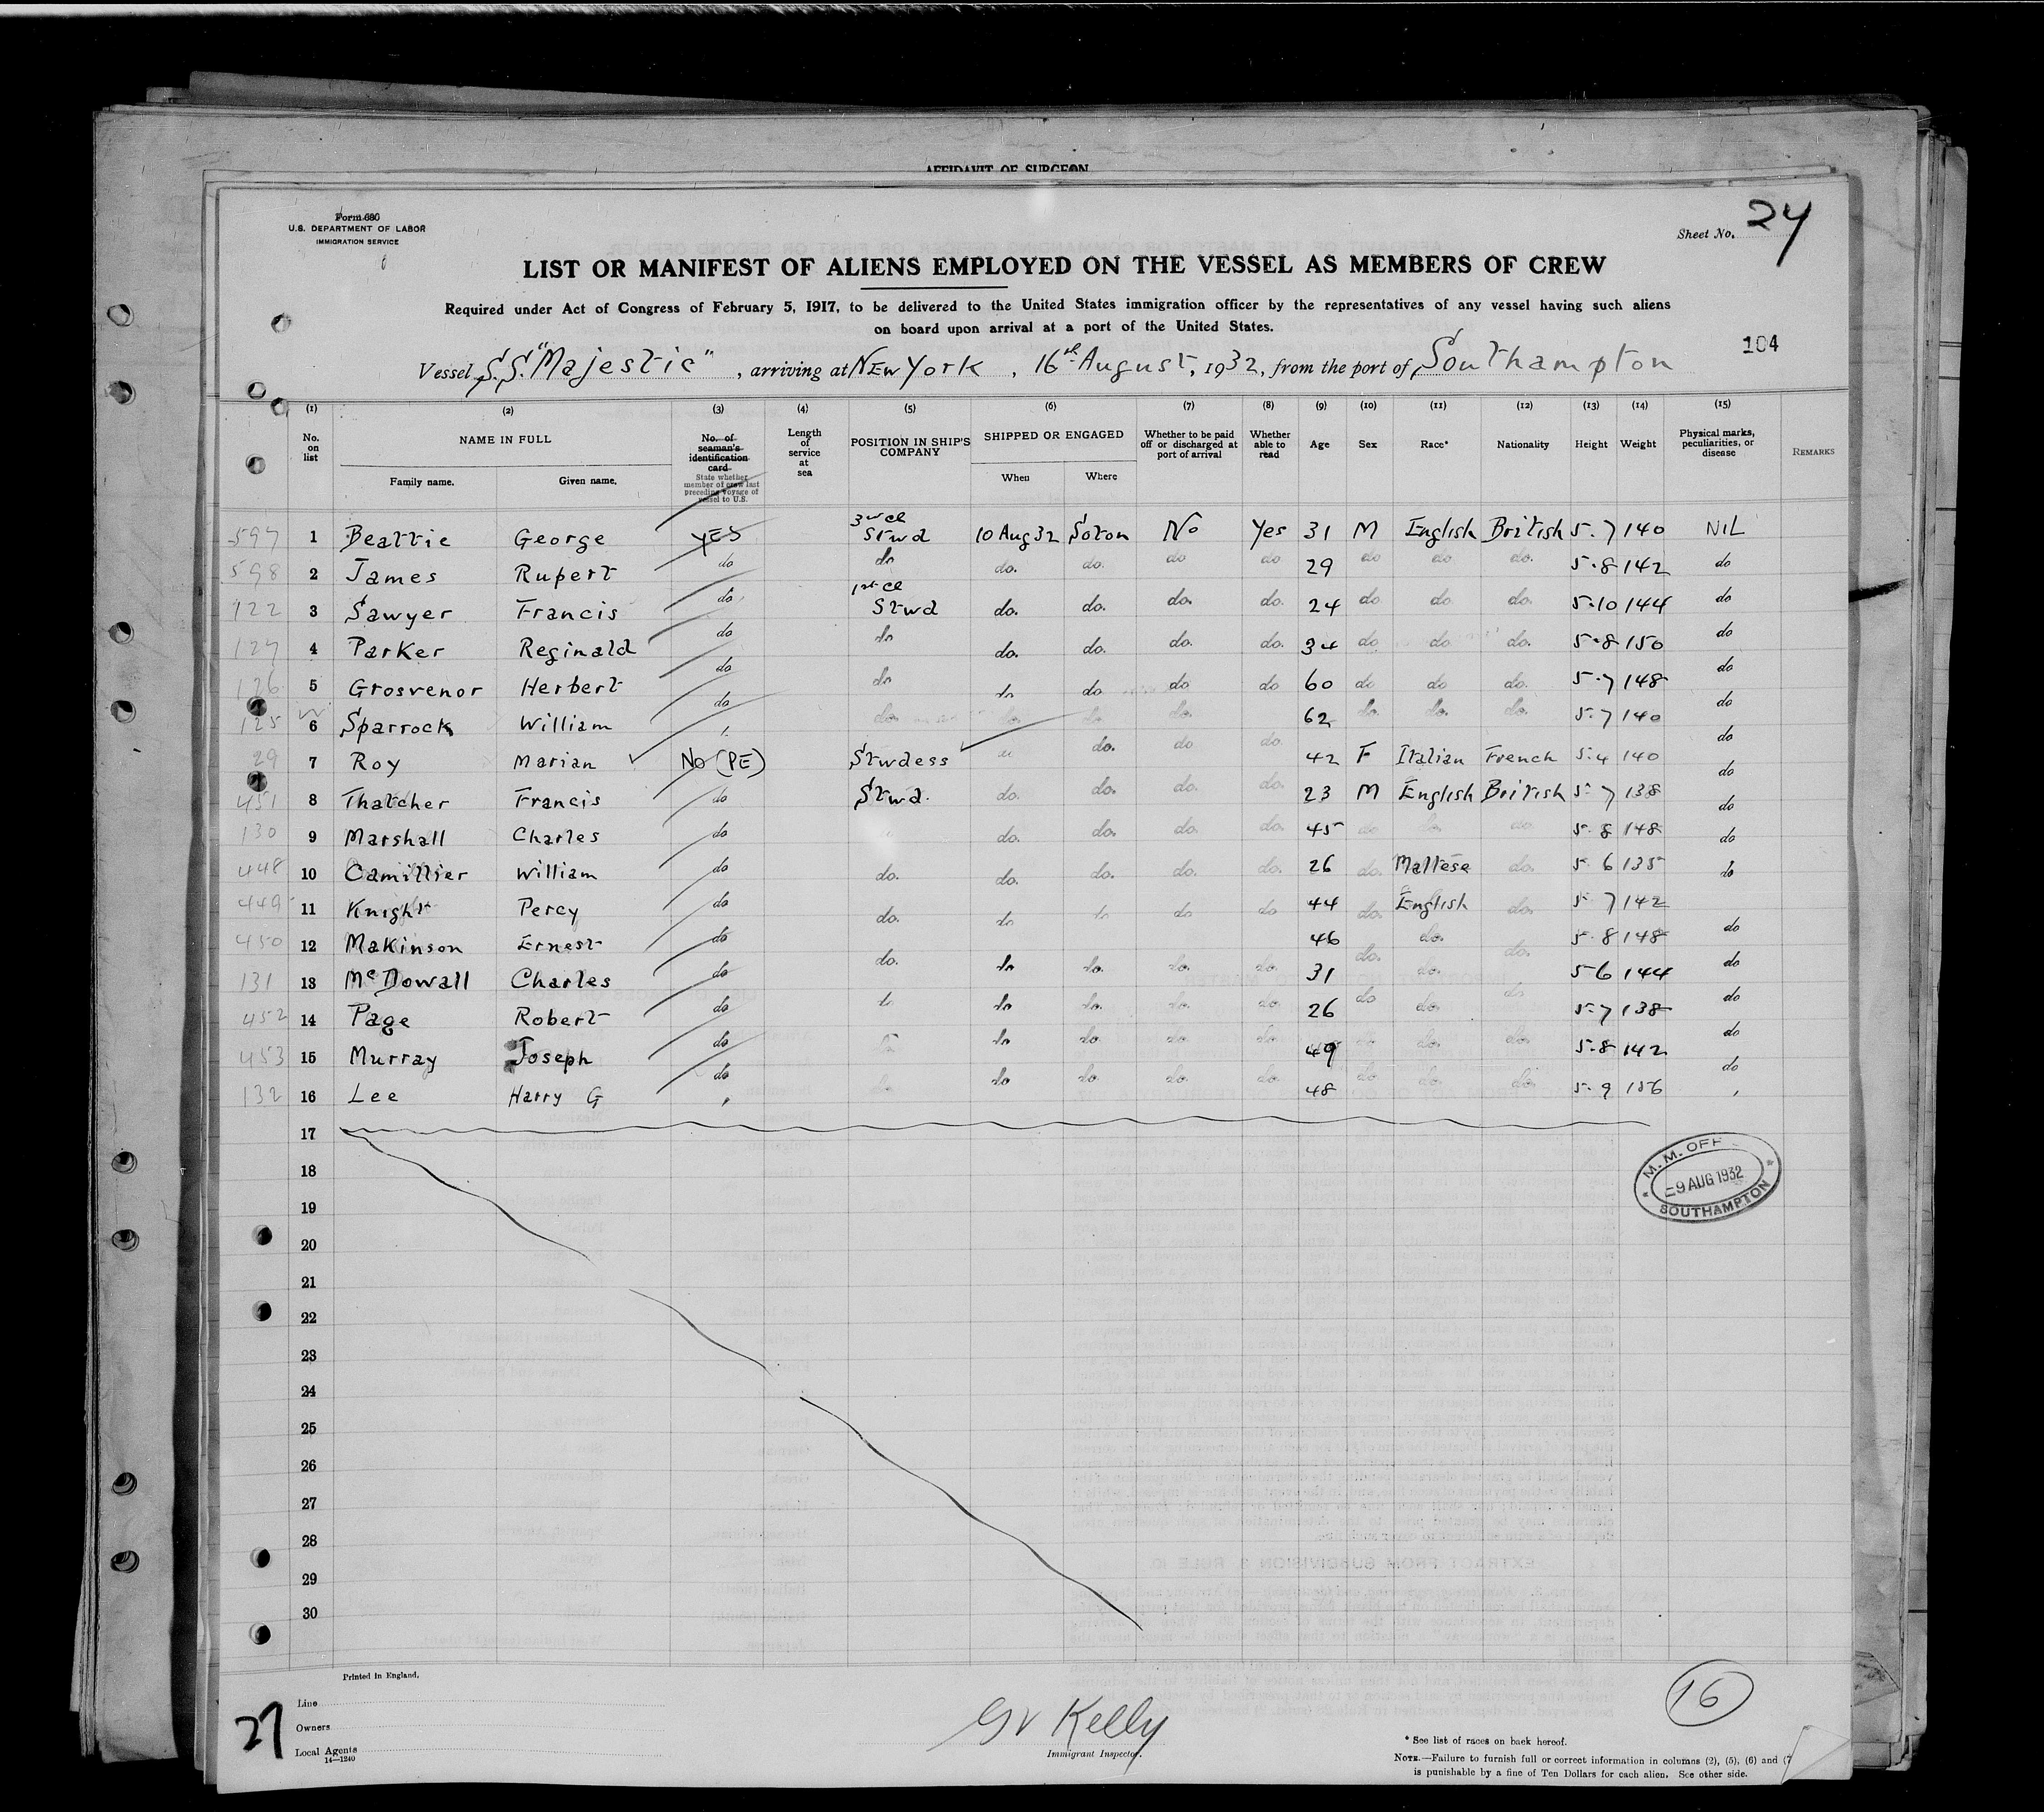 AFFIDAVIT OF SURGEON
Form 680
U.S. DEPARTMENT OF LABOR
IMMIGRATION SERVICE
Sheet No. 24
LIST OR MANIFEST OF ALIENS EMPLOYED ON THE VESSEL AS MEMBERS OF CREW
Required under Act of Congress of February 5, 1917, to be delivered to the United States immigration officer by the representatives of any vessel having such aliens
on board upon arrival at a port of the United States.
104
Vessel S.S. "Majestic", arriving at New York, 16th August, 1932, from the port of Southampton
(1) (2) (3) (4) (5) (6) (7) (8) (9) (10) (11) (12) (13) (14) (15)
No. on list
NAME IN FULL
Family name. Given name.
No. of seaman's identification card
State whether member of crew last preceding voyage of vessel to U.S.
Length of service at sea
POSITION IN SHIP'S COMPANY
SHIPPED OR ENGAGED
When Where
Whether to be paid off or discharged at port of arrival
Whether able to read
Age Sex Race* Nationality Height Weight
Physical marks, peculiarities, or disease
REMARKS
597 1 Beattie George YES 3rd Cl Stwd 10 Aug 32 Soton No Yes 31 M English British 5.7 140 NIL
598 2 James Rupert do do do. do. do do 29 do do do. 5.8 142 do
122 3 Sawyer Francis do 1st Cl Stwd do. do. do. do. 24 do do do. 5.10 144 do
127 4 Parker Reginald do do do. do. do. do. 34 do do do. 5.8 150 do
126 5 Grosvenor Herbert do do do do do do 60 do do do. 5.7 148 do
125 6 Sparrock William do do. do. do. do. 62 do. do. do. 5.7 140 do
29 7 Roy Marian No (PE) Stwdess do. do do 42 F Italian French 5.4 140 do
451 8 Thatcher Francis do Stwd. do. do. do. do. 23 M English British 5.7 138 do
130 9 Marshall Charles do do. do. do. do. 45 do do. do 5.8 148 do
448 10 Camillier William do do. do. do. do. do. 26 do. Maltese do. 5.6 135 do
449 11 Knight Percy do do. do do do do 44 do. English do. 5.7 142 do
450 12 Makinson Ernest do do. 46 do. do. do. 5.8 148 do
131 13 McDowall Charles do do. do do. do. do. 31 do. 5 6 144 do
452 14 Page Robert do do do do. do. do. 26 do do. do 5.7 138 do
453 15 Murray Joseph do do do. do. do. 49 do. do. do. 5.8 142 do
132 16 Lee Harry G do do. do do. do. do. 48 do do. do. 5.9 156 do
17
18
19
20
21
22
23
24
25
26
27
28
29
30
M. M. OFF
9 AUG 1932
SOUTHAMPTON
Printed in England.
27
Line
Owners
Local Agents
14—1240
GV Kelly
Immigrant Inspector.
16
* See list of races on back hereof.
NOTE.—Failure to furnish full or correct information in columns (2), (5), (6) and (7
is punishable by a fine of Ten Dollars for each alien. See other side.